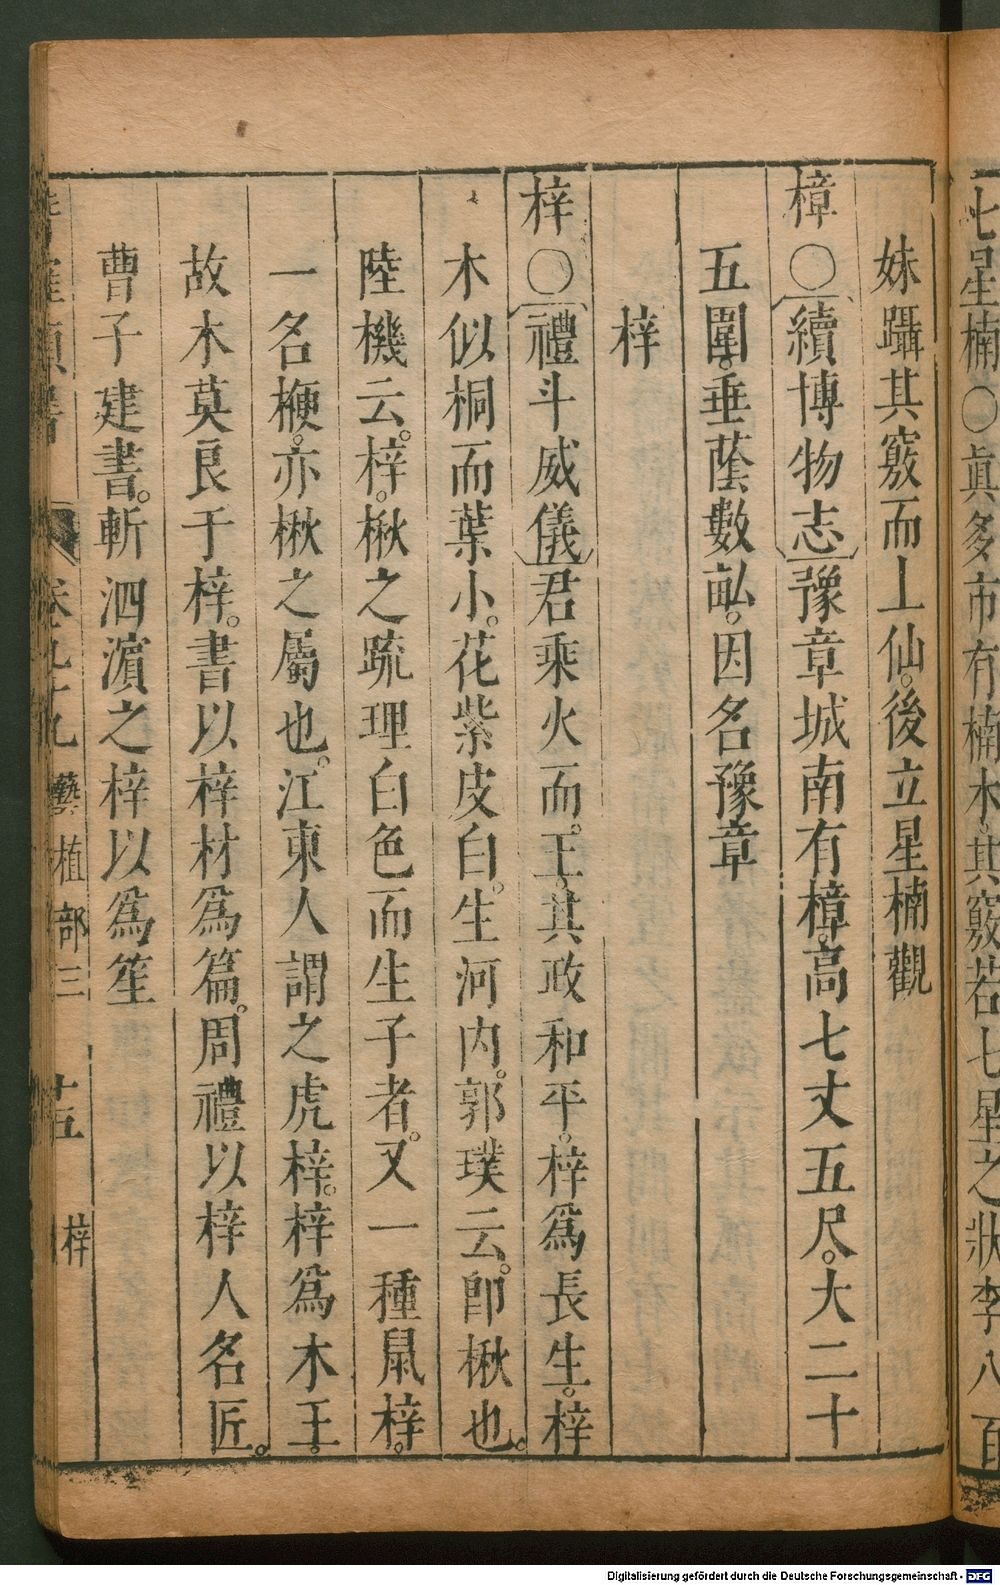 七星楠○眞多市有楠木其竅若七星之狀李八百
妹躡其竅而上仙後立星楠觀
樟○續博物志豫章城南有樟高七丈五尺大二十
五圍垂蔭數畝因名豫章
梓
梓○禮斗威儀君乘火而王其政和平梓爲長生梓
木似桐而葉小花紫皮白生河内郭璞云卽楸也
陸機云梓楸之疏理白色而生子者又一種鼠梓
一名楩亦楸之屬也江東人謂之虎梓梓爲木王
故木莫良于梓書以梓材爲篇周禮以梓人名匠
曹子建書斬泗濵之梓以爲笙
卷九十九 藝植部三 十五 梓
Digitalisierung gefördert durch die Deutsche Forschungsgemeinschaft - DFG